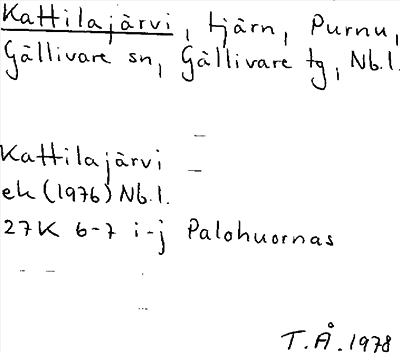 Kattilajärvi, tjärn, Purnu,
Gällivare sn, Gällivare tg, Nb.l.
Kattilajärvi
ek (1976) Nb.l.
27K 6-7 i-j Palohuornas
T.Å. 1978